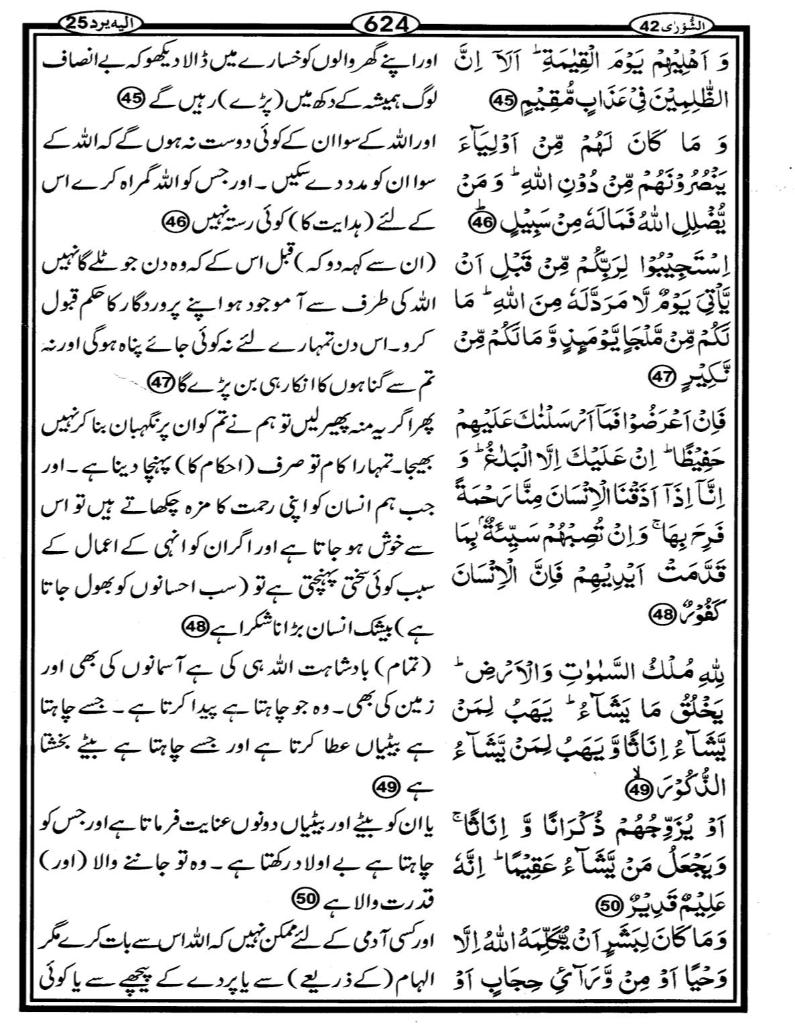 الشُّوْرٰى 42
624
اليه يرد 25
وَ اَهْلِيْهِمْ يَوْمَ الْقِيٰمَةِ ؕ اَلَاۤ اِنَّ
الظّٰلِمِيْنَ فِيْ عَذَابٍ مُّقِيْمٍ 45
وَ مَا كَانَ لَهُمْ مِّنْ اَوْلِيَآءَ
يَنْصُرُوْنَهُمْ مِّنْ دُوْنِ اللّٰهِ ؕ وَ مَنْ
يُّضْلِلِ اللّٰهُ فَمَا لَهٗ مِنْ سَبِيْلٍ ؕ 46
اِسْتَجِيْبُوْا لِرَبِّكُمْ مِّنْ قَبْلِ اَنْ
يَّاْتِيَ يَوْمٌ لَّا مَرَدَّ لَهٗ مِنَ اللّٰهِ ؕ مَا
لَكُمْ مِّنْ مَّلْجَاٍ يَّوْمَىِٕذٍ وَّ مَا لَكُمْ مِّنْ
نَّكِيْرٍ 47
فَاِنْ اَعْرَضُوْا فَمَاۤ اَرْسَلْنٰكَ عَلَيْهِمْ
حَفِيْظًا ؕ اِنْ عَلَيْكَ اِلَّا الْبَلٰغُ ؕ وَ
اِنَّاۤ اِذَاۤ اَذَقْنَا الْاِنْسَانَ مِنَّا رَحْمَةً
فَرِحَ بِهَا ۚ وَ اِنْ تُصِبْهُمْ سَيِّئَةٌۢ بِمَا
قَدَّمَتْ اَيْدِيْهِمْ فَاِنَّ الْاِنْسَانَ
كَفُوْرٌ 48
لِلّٰهِ مُلْكُ السَّمٰوٰتِ وَالْاَرْضِ ؕ
يَخْلُقُ مَا يَشَآءُ ؕ يَهَبُ لِمَنْ
يَّشَآءُ اِنَاثًا وَّ يَهَبُ لِمَنْ يَّشَآءُ
الذُّكُوْرَ ۙ 49
اَوْ يُزَوِّجُهُمْ ذُكْرَانًا وَّ اِنَاثًا ۚ
وَيَجْعَلُ مَنْ يَّشَآءُ عَقِيْمًا ؕ اِنَّهٗ
عَلِيْمٌ قَدِيْرٌ 50
وَمَا كَانَ لِبَشَرٍ اَنْ يُّكَلِّمَهُ اللّٰهُ اِلَّا
وَحْيًا اَوْ مِنْ وَّرَآئِ حِجَابٍ اَوْ
اور اپنے گھر والوں کو خسارے میں ڈالا دیکھو کہ بے انصاف
لوگ ہمیشہ کے دکھ میں (پڑے) رہیں گے 45
اور اللہ کے سوا ان کے کوئی دوست نہ ہوں گے کہ اللہ کے
سوا ان کو مدد دے سکیں ۔ اور جس کو اللہ گمراہ کرے اس
کے لئے (ہدایت کا) کوئی رستہ نہیں 46
(ان سے کہہ دو کہ) قبل اس کے کہ وہ دن جو ٹلے گا نہیں
اللہ کی طرف سے آ موجود ہو اپنے پروردگار کا حکم قبول
کرو۔ اس دن تمہارے لئے نہ کوئی جائے پناہ ہوگی اور نہ
تم سے گناہوں کا انکار ہی بن پڑے گا 47
پھر اگر یہ منہ پھیر لیں تو ہم نے تم کو ان پر نگہبان بنا کر نہیں
بھیجا۔ تمہارا کام تو صرف (احکام کا) پہنچا دینا ہے ۔ اور
جب ہم انسان کو اپنی رحمت کا مزہ چکھاتے ہیں تو اس
سے خوش ہو جاتا ہے اور اگر ان کو انہی کے اعمال کے
سبب کوئی سختی پہنچتی ہے تو (سب احسانوں کو بھول جاتا
ہے) بیشک انسان بڑا ناشکرا ہے 48
(تمام) بادشاہت اللہ ہی کی ہے آسمانوں کی بھی اور
زمین کی بھی۔ وہ جو چاہتا ہے پیدا کرتا ہے ۔ جسے چاہتا
ہے بیٹیاں عطا کرتا ہے اور جسے چاہتا ہے بیٹے بخشتا
ہے 49
یا ان کو بیٹے اور بیٹیاں دونوں عنایت فرماتا ہے اور جس کو
چاہتا ہے بے اولاد رکھتا ہے ۔ وہ تو جاننے والا (اور)
قدرت والا ہے 50
اور کسی آدمی کے لئے ممکن نہیں کہ اللہ اس سے بات کرے مگر
الہام (کے ذریعے) سے یا پردے کے پیچھے سے یا کوئی